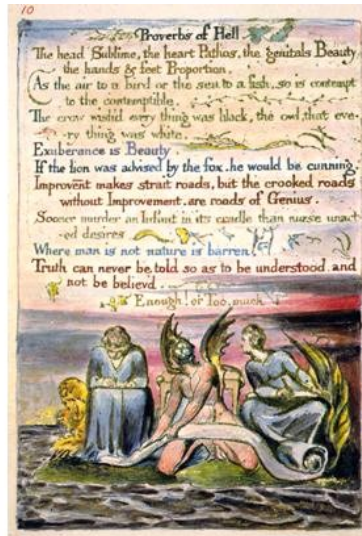 10
Proverbs of Hell
The head Sublime, the heart Pathos, the genitals Beauty
the hands & feet Proportion.
As the air to a bird or the sea to a fish, so is contempt
to the contemptible.
The crow wish'd every thing was black, the owl, that eve-
-ry thing was white.
Exuberance is Beauty.
If the lion was advised by the fox. he would be cunning.
Improvent makes strait roads, but the crooked roads
without Improvement, are roads of Genius.
Sooner murder an Infant in its cradle than nurse unact-
-ed desires
Where man is not nature is barren.
Truth can never be told so as to be understood, and
not be believd.
Enough! or Too much